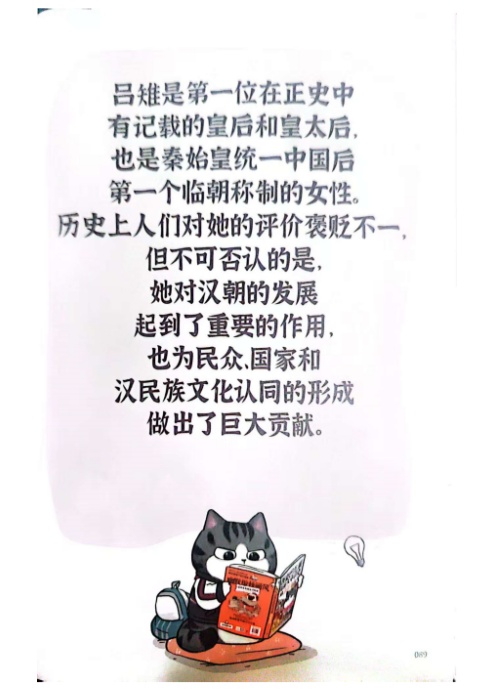 吕雉是第一位在正史中
有记载的皇后和皇太后，
也是秦始皇统一中国后
第一个临朝称制的女性。
历史上人们对她的评价褒贬不一，
但不可否认的是，
她对汉朝的发展
起到了重要的作用，
也为民众、国家和
汉民族文化认同的形成
做出了巨大贡献。
089